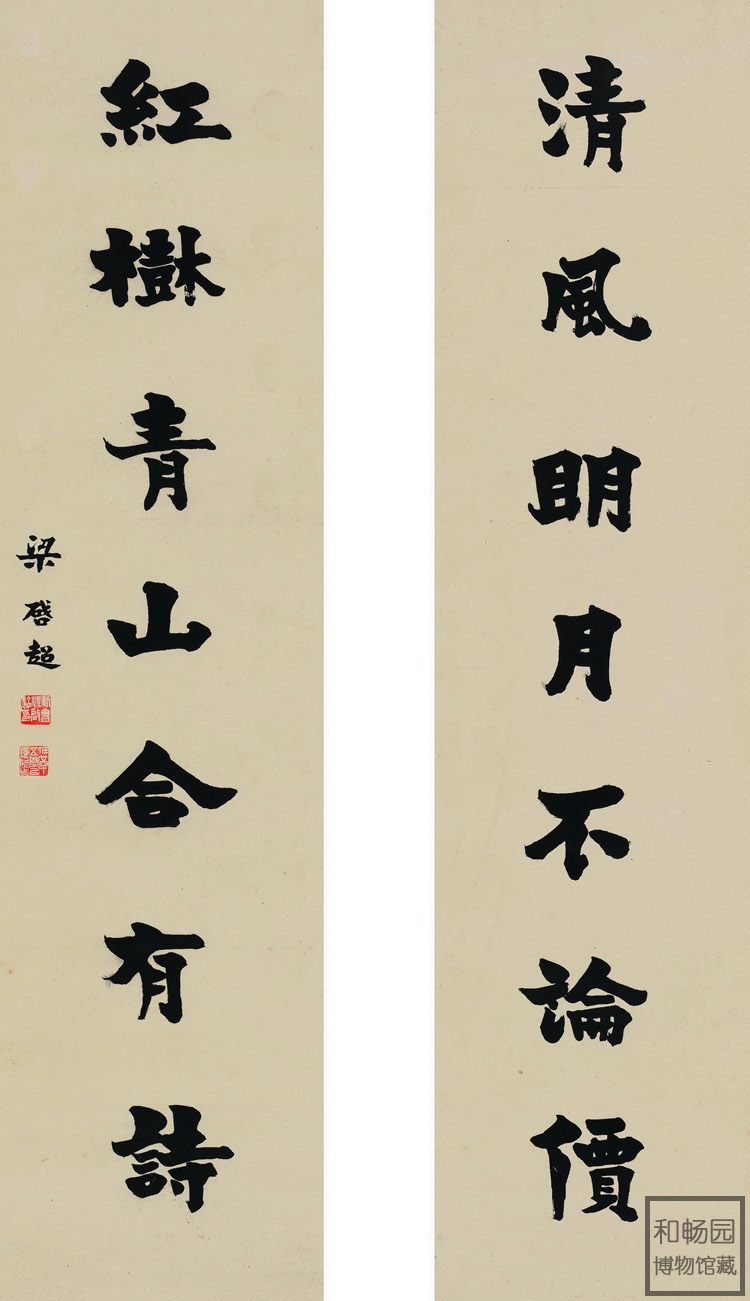 清風明月不論價
紅樹青山合有詩
梁啓超
和畅园
博物馆藏